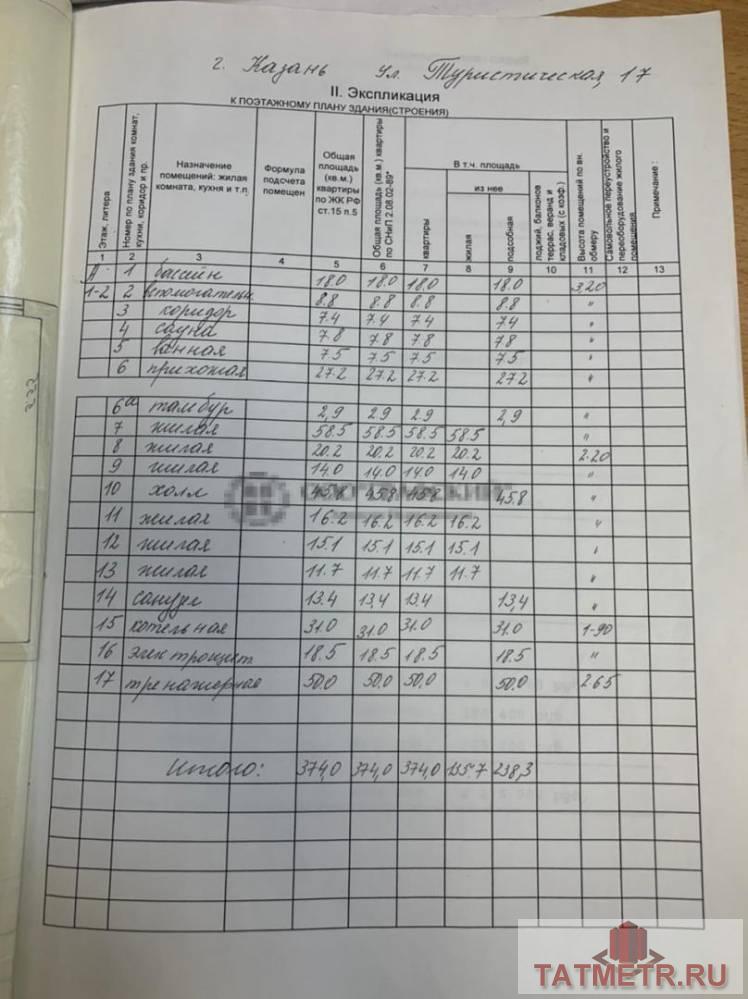 г. Казань ул. Туристическая, 17
II. Экспликация
К ПОЭТАЖНОМУ ПЛАНУ ЗДАНИЯ(СТРОЕНИЯ)
Этаж, литера
Номер по плану здания комнат, кухни, коридор и пр.
Назначение помещений: жилая комната, кухня и т.п.
Формула подсчета помещен
Общая площадь (кв.м.) квартиры по ЖК РФ ст.15 п.5
Общая площадь (кв.м.) квартиры по СНиП 2.08.02-89*
В т.ч. площадь
квартиры
из нее
жилая
подсобная
лоджий, балконов террас, веранд и кладовых (с коэф.)
Высота помещений по вн. обмеру
Самовольное переустройство и переоборудование жилого помещения
Примечание :
1 2 3 4 5 6 7 8 9 10 11 12 13
А 1 бассейн 18.0 18.0 18.0 18.0 3,20
1-2 2 вспомогательн. 8.8 8.8 8.8 8.8 "
3 коридор 7.4 7.4 7.4 7.4 "
4 сауна 7.8 7.8 7.8 7.8 "
5 ванная 7.5 7.5 7.5 7.5 "
6 прихожая 27.2 27.2 27.2 27.2 "
6а тамбур 2,9 2.9 2.9 2,9 "
7 жилая 58.5 58.5 58.5 58.5 "
8 жилая 20.2 20.2 20.2 20.2 2.20
9 жилая 14.0 14.0 14.0 14.0 "
10 холл 45.8 45.8 45.8 45.8 "
11 жилая 16.2 16.2 16.2 16.2 "
12 жилая 15.1 15.1 15.1 15.1 "
13 жилая 11.7 11.7 11.7 11.7 "
14 санузел 13.4 13,4 13.4 13,4 "
15 котельная 31.0 31.0 31.0 31.0 1-90
16 электрощит 18.5 18.5 18.5 18.5 "
17 тренажерная 50.0 50.0 50.0 50.0 2.65
Итого: 374,0 374,0 374,0 135.7 238,3
TATMETR.RU